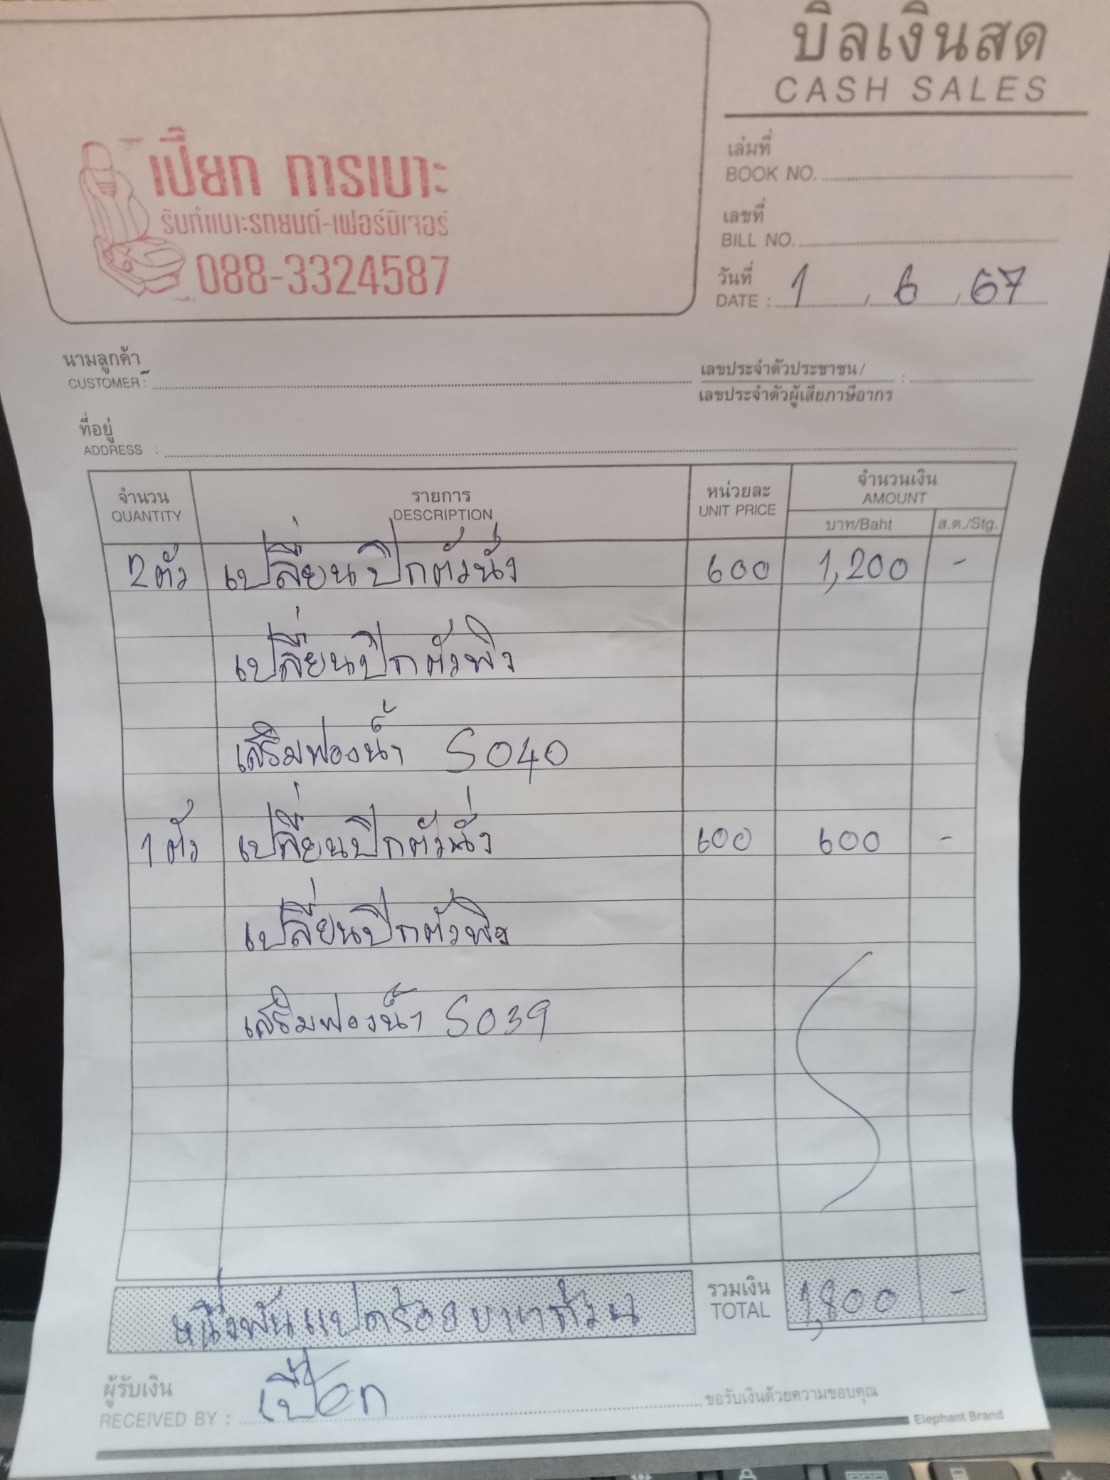 บิลเงินสด
CASH SALES
เปี๊ยก การเบาะ
รับทำเบาะรถยนต์-เฟอร์นิเจอร์
088-3324587
เล่มที่
BOOK NO.
เลขที่
BILL NO.
วันที่
DATE : 1 , 6 , 67
นามลูกค้า
CUSTOMER :
เลขประจำตัวประชาชน / :
เลขประจำตัวผู้เสียภาษีอากร
ที่อยู่
ADDRESS :
จำนวน รายการ หน่วยละ จำนวนเงิน
QUANTITY DESCRIPTION UNIT PRICE AMOUNT
บาท/Baht ส.ต./Stg.
2 ตัว เปลี่ยนปีกตัวนั่ง 600 1,200 -
เปลี่ยนปีกตัวพิง
เสริมฟองน้ำ S040
1 ตัว เปลี่ยนปีกตัวนั่ง 600 600 -
เปลี่ยนปีกตัวพิง
เสริมฟองน้ำ S039
หนึ่งพันแปดร้อยบาทถ้วน รวมเงิน 1,800 -
TOTAL
ผู้รับเงิน
RECEIVED BY : เปี๊ยก ขอรับเงินด้วยความขอบคุณ
Elephant Brand